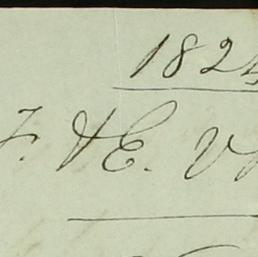 1824
F. & E. V